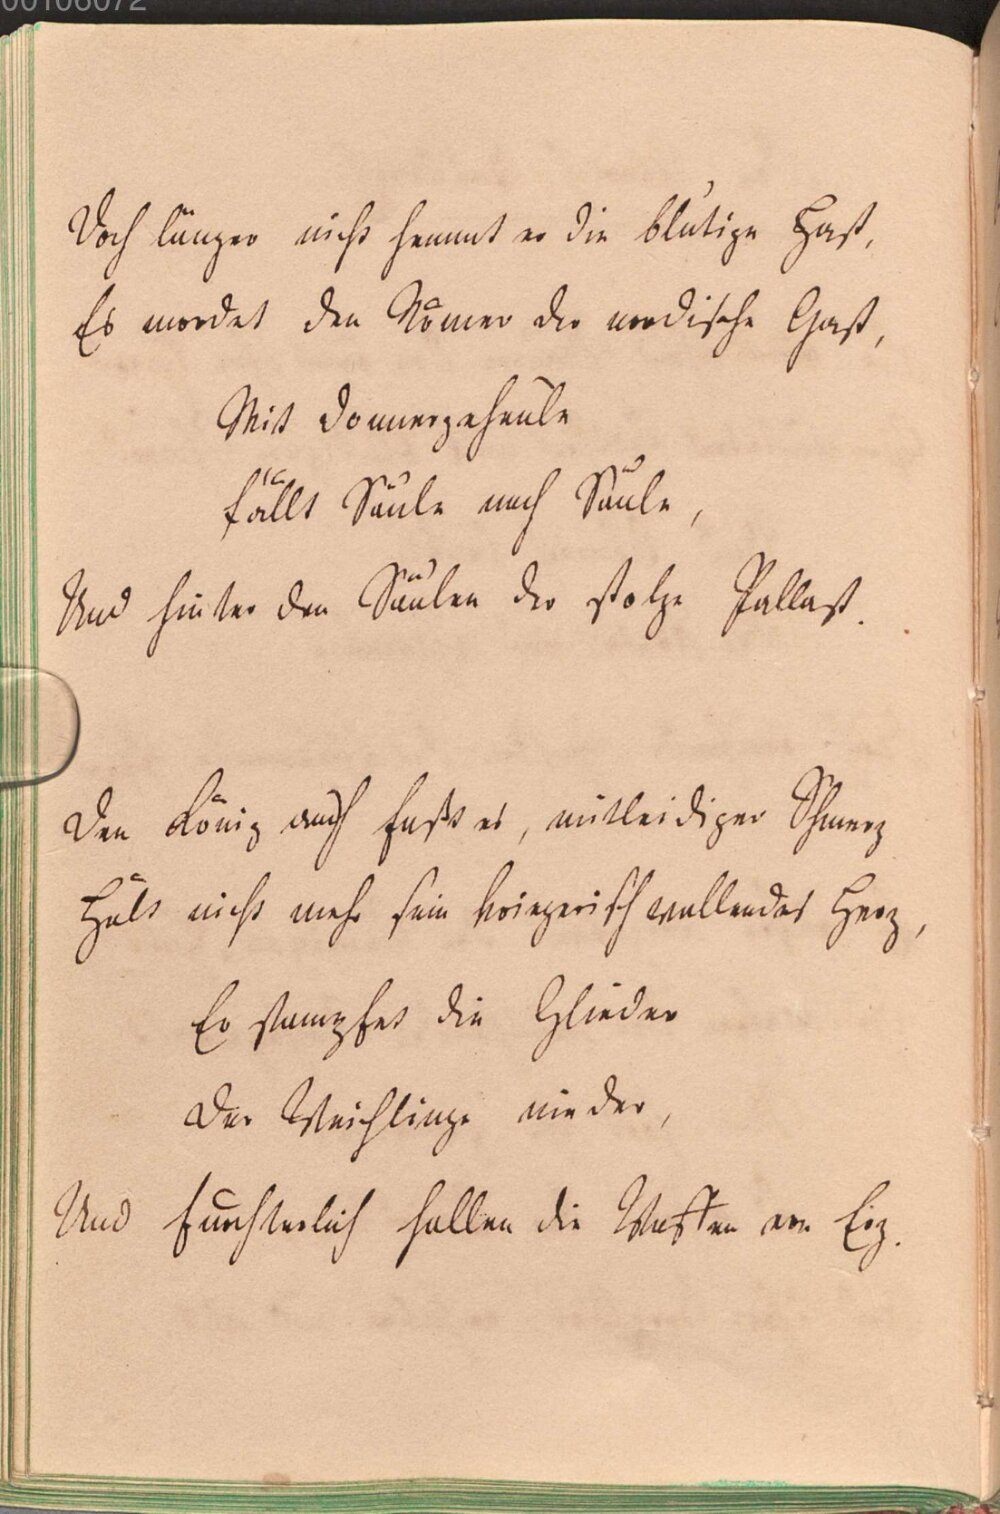 00108072
Doch länger nicht hemmt er die blutige Hast,
Es mordet den Römer der nordische Gast,
Mit Donnergeheule
fällt Säule nach Säule,
Und hinter den Säulen der stolze Pallast.
Den König auch faßt es, mitleidiger Schmerz
Hält nicht mehr sein kriegerisch wallendes Herz,
Er stampfet die Glieder
Der Weichlinge nieder,
Und fürchterlich hallen die Waffen von Erz.